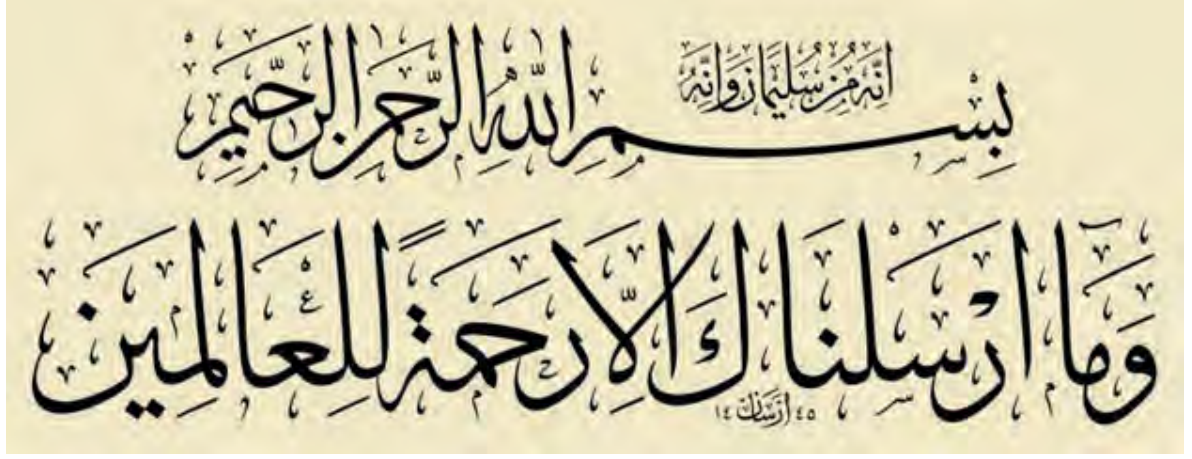 انه من سليمان وانه
بسم الله الرحمن الرحيم
وما ارسلناك الا رحمة للعالمين